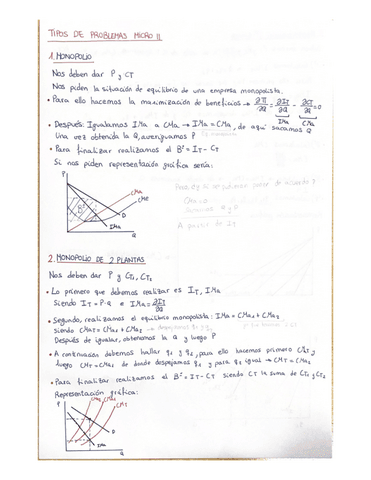 TIPOS DE PROBLEMAS MICRO II
1. MONOPOLIO
Nos deben dar P y CT
Nos piden la situación de equilibrio de una empresa monopolista.
• Para ello hacemos la maximización de beneficios → ∂π/∂Q = ∂IT/∂Q - ∂CT/∂Q = 0
IMa CMa
• Después: Igualamos IMa a CMa → IMa = CMa, de aquí sacamos Q
Una vez obtenida la Q, averiguamos P
• Para finalizar realizamos el Bº = IT - CT
Si nos piden representación gráfica sería:
P
CMa
CMe
Bº
D
IMa
Q
CMa=0
A partir de
2. MONOPOLIO DE 2 PLANTAS
Nos deben dar P y CT₁, CT₂
• Lo primero que debemos realizar es IT, IMa
Siendo IT = P·Q e IMa = ∂IT/∂Q
• Segundo, realizamos el equilibrio monopolista: IMa = CMa₁ + CMa₂
siendo CMaT = CMa₁ + CMa₂ → despejamos q₁ y q₂
Después de igualar, obtenemos la Q y luego P
• A continuación debemos hallar q₁ y q₂, para ello hacemos primero CMT y
luego CMT = CMa₁ de donde despejamos q₁ y para q₂ igual → CMT = CMa₂
• Para finalizar realizamos el Bº = IT - CT siendo CT la suma de CT₁ y CT₂
Representación gráfica:
P
CMa₁
CMa₂
CMT
D
IMa
Q